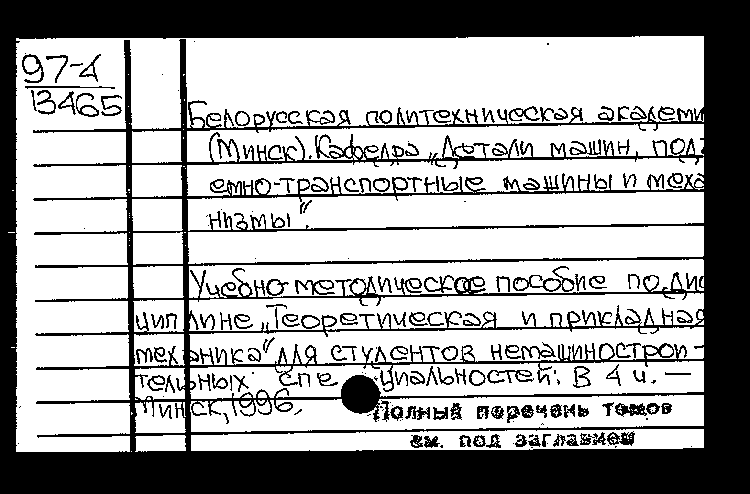 97-4
13465
Белорусская политехническая академи
(Минск). Кафедра „Детали машин, подъ
емно-транспортные машины и меха
низмы".
Учебно-методическое пособие по дис
циплине „Теоретическая и прикладная
механика" для студентов немашинострои-
тельных специальностей: В 4 ч. —
Минск, 1996.
Полный перечень томов
см. под заглавием